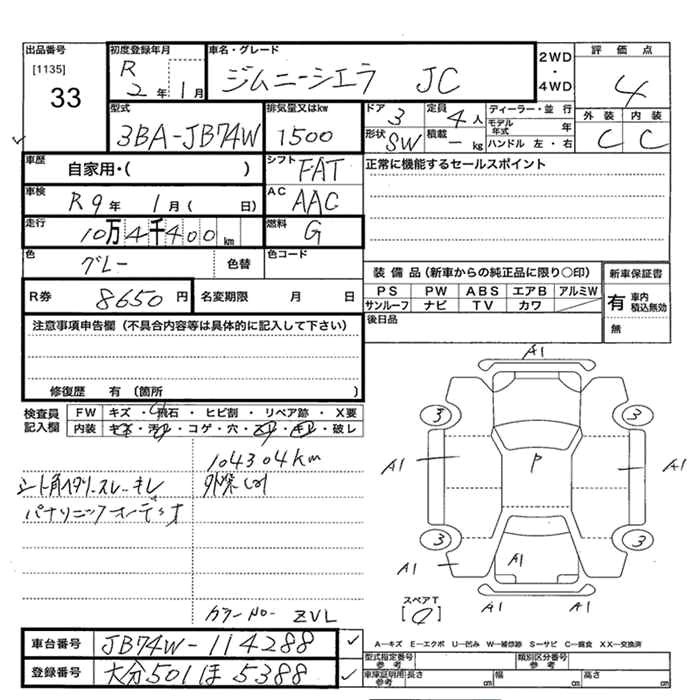 出品番号
[1135]
33
初度登録年月
R 2年 1月
車名・グレード
ジムニーシエラ JC
2WD・4WD
評価点
4
型式
3BA-JB74W
排気量又はkw
1500
ドア 3
定員 4人
形状 SW
積載 - kg
ディーラー・並行
モデル年式 年
ハンドル 左・右
外装 内装
C C
車歴
自家用・( )
シフト
FAT
正常に機能するセールスポイント
車検
R9年 1月( 日)
AC
AAC
走行
10万4千400km
燃料
G
色
グレー
色替
色コード
R券 8650円
名変期限 月 日
装備品(新車からの純正品に限り○印)
PS PW ABS エアB アルミW
サンルーフ ナビ TV カワ
新車保証書
有 車内積込無効
無
後日品
注意事項申告欄(不具合内容等は具体的に記入して下さい)
修復歴 有(箇所 )
検査員記入欄
FW キズ・飛石・ヒビ割・リペア跡・X要
内装 キズ・汚レ・コゲ・穴・スレ・キレ・破レ
104304km
シート角ヘタリ.スレ.キレ
パナソニックオーディオ
カラーNo. ZVL
A1
3 3
A1 P A1
3 3
A1 A1 A1
スペアT
A1 A1
A…キズ E…エクボ U…凹み W…補修跡 S…サビ C…腐食 XX…交換済
車台番号 JB74W-114288
登録番号 大分501ほ5388
型式指定番号 参考
類別区分番号 参考
車庫証明用参考
長さ cm 幅 cm 高さ cm